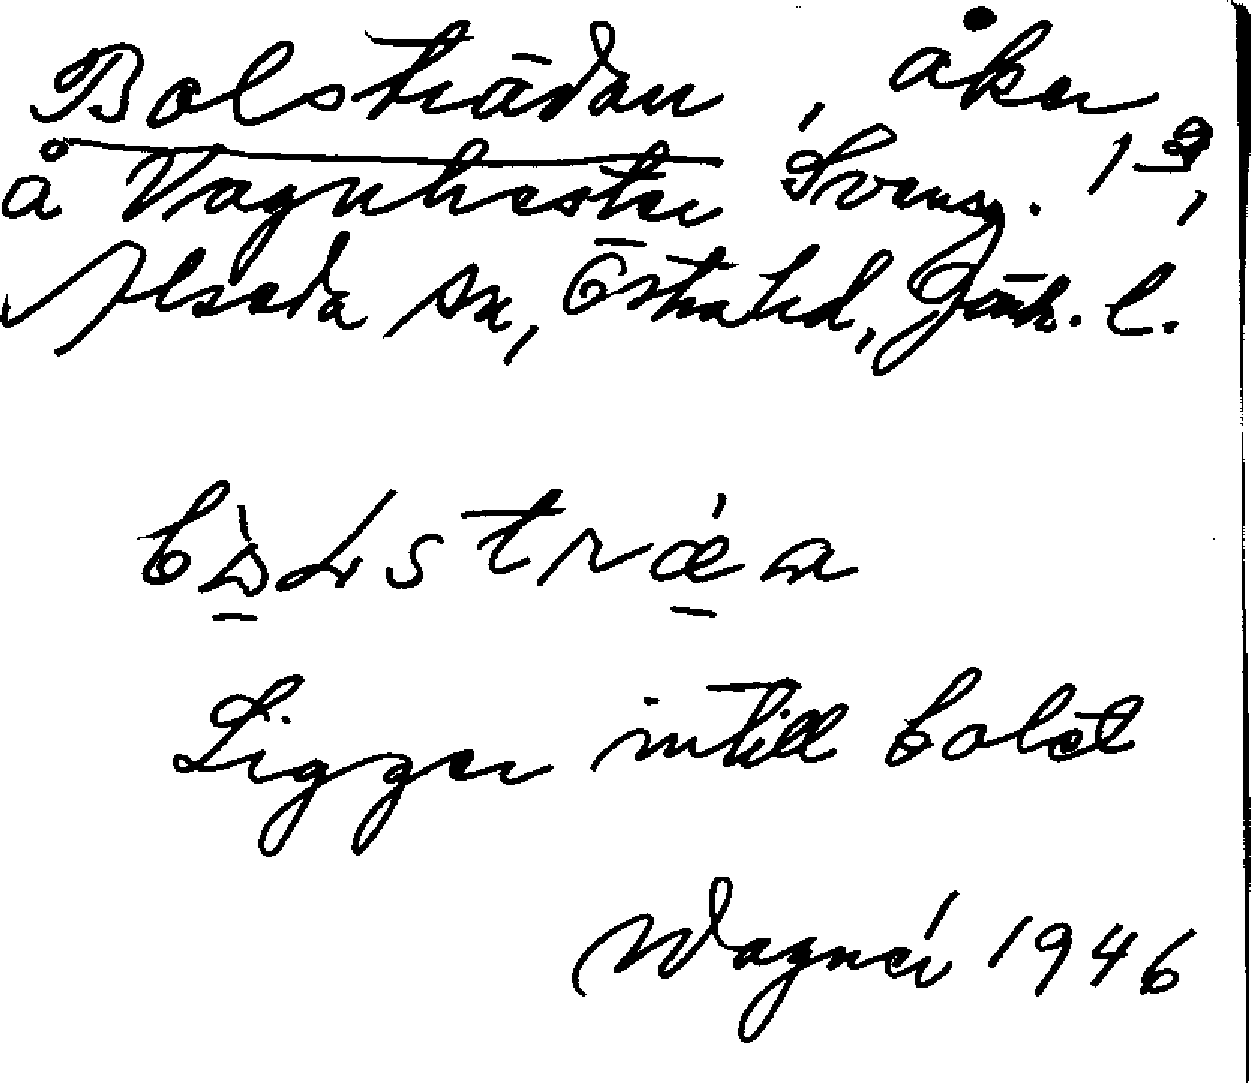 Bolsträdan, åker
å Vagnhester Svensg. 1 2,
Alseda sn, Östra hd, Jönk. l.
Ligger intill bolet
Wagnér 1946